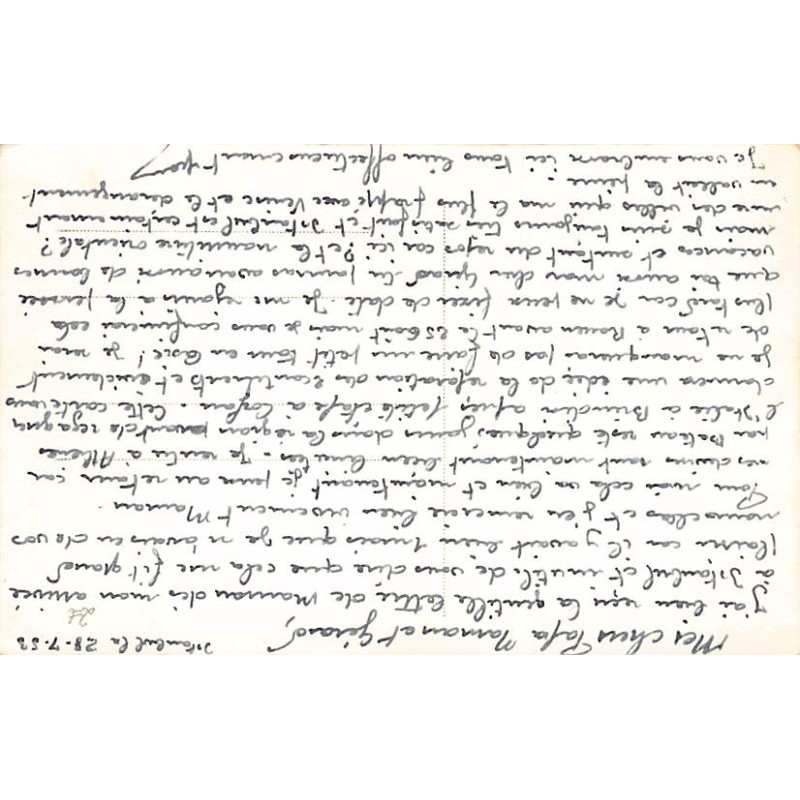 Istanbul le 28-7-53
Mes chers Papa Maman et Gérard,
J'ai bien reçu la gentille lettre de Maman dès mon arrivée
à Istanbul et inutile de vous dire que cela me fit grand
plaisir car il y avait bien 1 mois que je n'avais eu de vos
nouvelles et j'en remercie bien vivement Maman.
Pour moi cela va bien et maintenant je pense au retour car
mes devises sont maintenant bien limitées. Je rentre à Athènes
par bateau reste quelques jours dans la région avant de regagner
l'Italie à Brindisi après petite étape à Corfou. Cette carte vous
donnera une idée de la réparation des 2 continents et évidemment
je ne manquerai pas de faire un petit tour en Asie! Je serai
de retour à Rouen avant le 25 Août mais je vous confirmerai cela
plus tard car je ne peux fixer de date. Je me réjouis à la pensée
que toi aussi mon cher Gérard tu pourras avoir aussi de bonnes
vacances et surtout du repos car ici ? et la nourriture orientale?
mais je suis toujours très satisfait et Istanbul est certainement
une des villes qui m'a le plus frappé avec Venise et le dérangement
en vallait la peine.
Je vous embrasse ici tous bien affectueusement